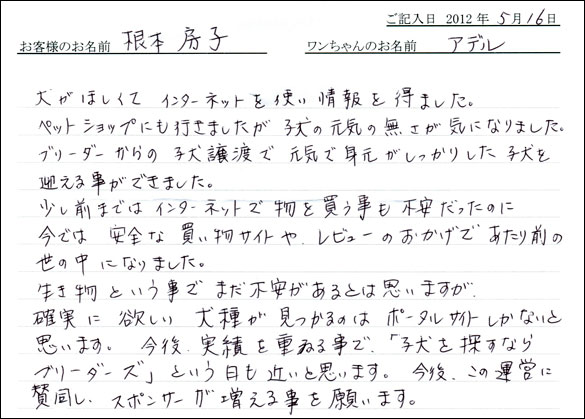 ご記入日 2012年5月16日
お客様のお名前 根本 房子 ワンちゃんのお名前 アデル
犬がほしくて インターネットを使い情報を得ました。
ペットショップにも行きましたが 子犬の元気の無さが気になりました。
ブリーダーからの子犬譲渡で 元気で身元がしっかりした子犬を
迎える事ができました。
少し前までは インターネットで物を買う事も不安だったのに
今では 安全な買い物サイトや、レビューのおかげであたり前の
世の中になりました。
生き物という事でまだ不安があるとは思いますが、
確実に欲しい犬種が見つかるのはポータルサイトしかないと
思います。今後、実績を重ねる事で、「子犬を探すなら
ブリーダーズ」という日も近いと思います。今後、この運営に
賛同し、スポンサーが増える事を願います。